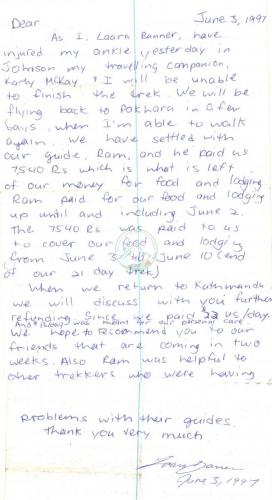 June 3, 1997
Dear
As I, Laara Banner, have
injured my ankle yesterday in
Johnson my travelling companion,
Karty McKay, & I will be unable
to finish the trek. We will be
flying back to Pokhara in a few
bays, when I'm able to walk
again. We have settled with
our guide, Ram, and he paid us
7540 Rs which is what is left
of our money for food and lodging
Ram paid for our food and lodging
up until and including June 2.
The 7540 Rs was paid to us
to cover our food and lodgig
from June 3 to June 10 (end
of our 21 day trek)
When we return to Kathmandu
we will discuss with you further
refunding since we paid $22 US/day.
And was meant for our personal care.
We hope to recommend you to our
friends that are coming in two
weeks. Also Ram was helpful to
other trekkers who were having
problems with their guides.
Thank you very much
June 3, 1997